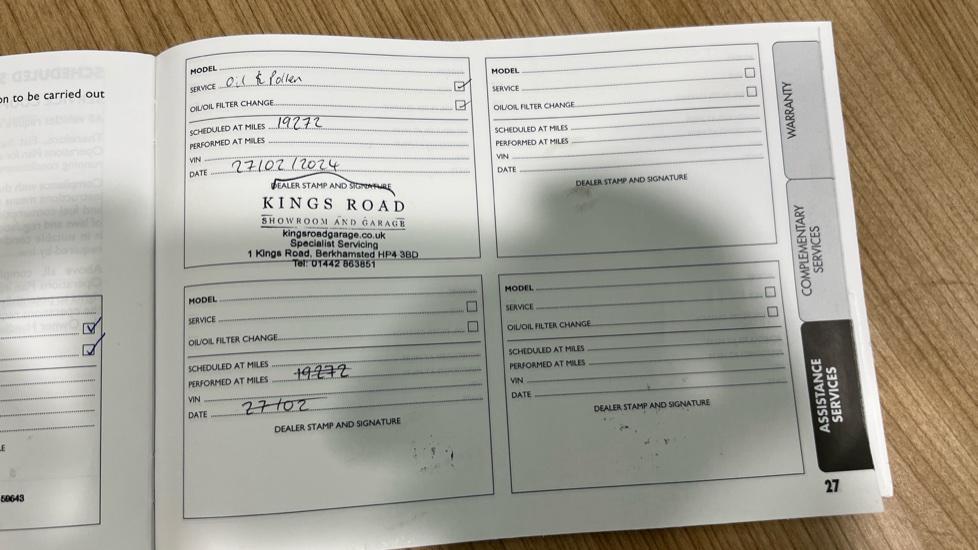 on to be carried out
E
50643
MODEL
SERVICE Oil & Pollen
OIL/OIL FILTER CHANGE
SCHEDULED AT MILES 19272
PERFORMED AT MILES
VIN
DATE 27/02/2024
DEALER STAMP AND SIGNATURE
KINGS ROAD
SHOWROOM AND GARAGE
kingsroadgarage.co.uk
Specialist Servicing
1 Kings Road, Berkhamsted HP4 3BD
Tel: 01442 863851
MODEL
SERVICE
OIL/OIL FILTER CHANGE
SCHEDULED AT MILES
PERFORMED AT MILES
VIN
DATE
DEALER STAMP AND SIGNATURE
MODEL
SERVICE
OIL/OIL FILTER CHANGE
SCHEDULED AT MILES
PERFORMED AT MILES 19272
VIN
DATE 27/02
DEALER STAMP AND SIGNATURE
MODEL
SERVICE
OIL/OIL FILTER CHANGE
SCHEDULED AT MILES
PERFORMED AT MILES
VIN
DATE
DEALER STAMP AND SIGNATURE
WARRANTY
COMPLEMENTARY
SERVICES
ASSISTANCE
SERVICES
27